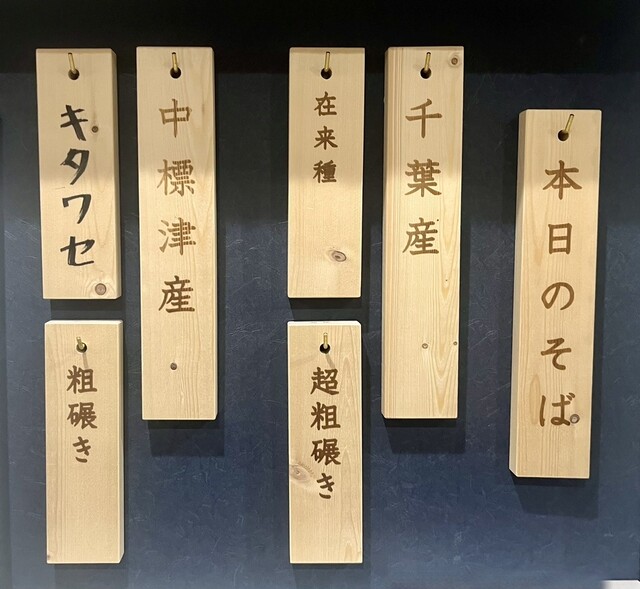 本日のそば
千葉産
在来種
超粗碾き
中標津産
キタワセ
粗碾き